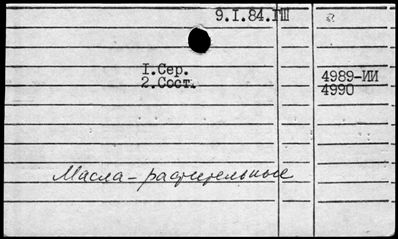 9.I.84.ПШ
I.Сер.
2.Сост.
4989-ИИ
4990
Масла-растительные